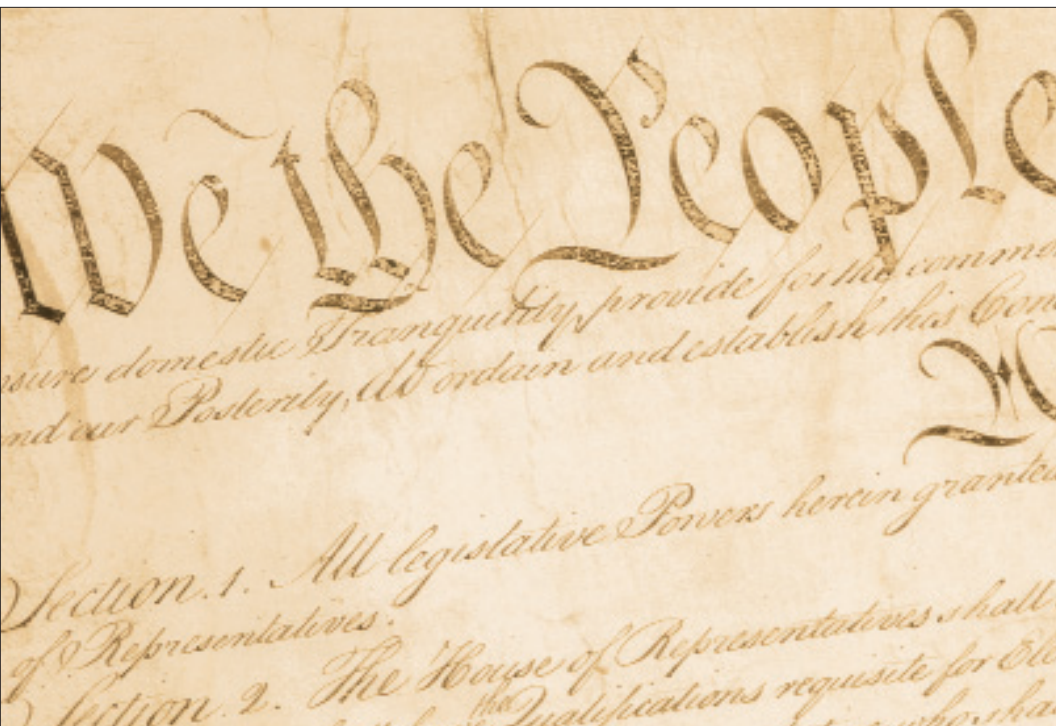 We the People
nsure domestic Tranquility, provide for the common
and our Posterity, do ordain and establish this Con
Section. 1. All legislative Powers herein granted
of Representatives.
Section. 2. The House of Representatives shall
the
Qualifications requisite for Ele